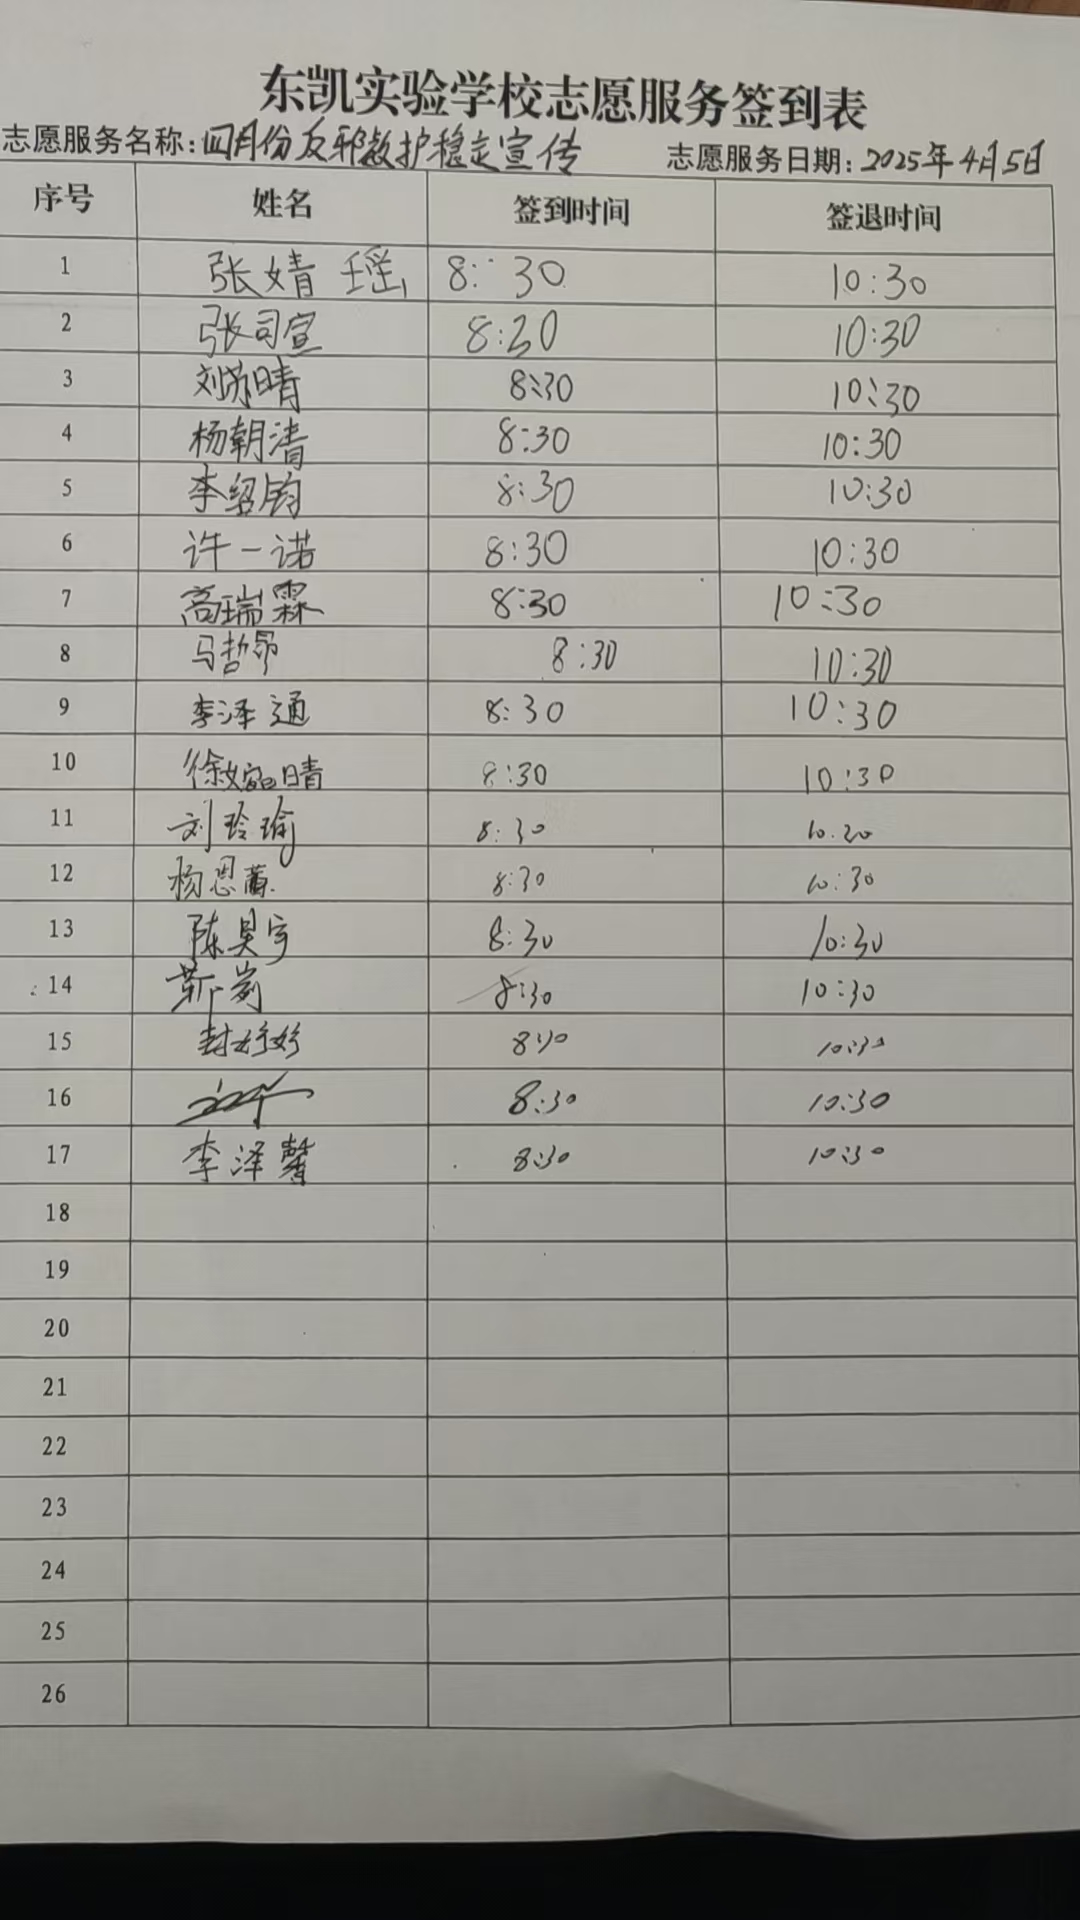 东凯实验学校志愿服务签到表
志愿服务名称:四月份反邪教护稳定宣传 志愿服务日期:2025年4月5日
序号 姓名 签到时间 签退时间
1 张婧瑶 8:30 10:30
2 张司宣 8:30 10:30
3 刘苏晴 8:30 10:30
4 杨朝清 8:30 10:30
5 李绍钧 8:30 10:30
6 许一诺 8:30 10:30
7 高瑞霖 8:30 10:30
8 马哲昂 8:30 10:30
9 李泽通 8:30 10:30
10 徐 晴 8:30 10:30
11 刘玲瑜 8:30 10.20
12 杨恩 8:30 10:30
13 陈昊宇 8:30 10:30
14 靳岗 8:30 10:30
15 封婷婷 8:30 10:30
16 8:30 10:30
17 李泽馨 8:30 10:30
18
19
20
21
22
23
24
25
26